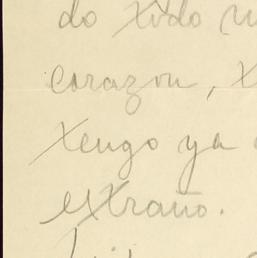 do todo
corazon,
tengo ya
extraño.